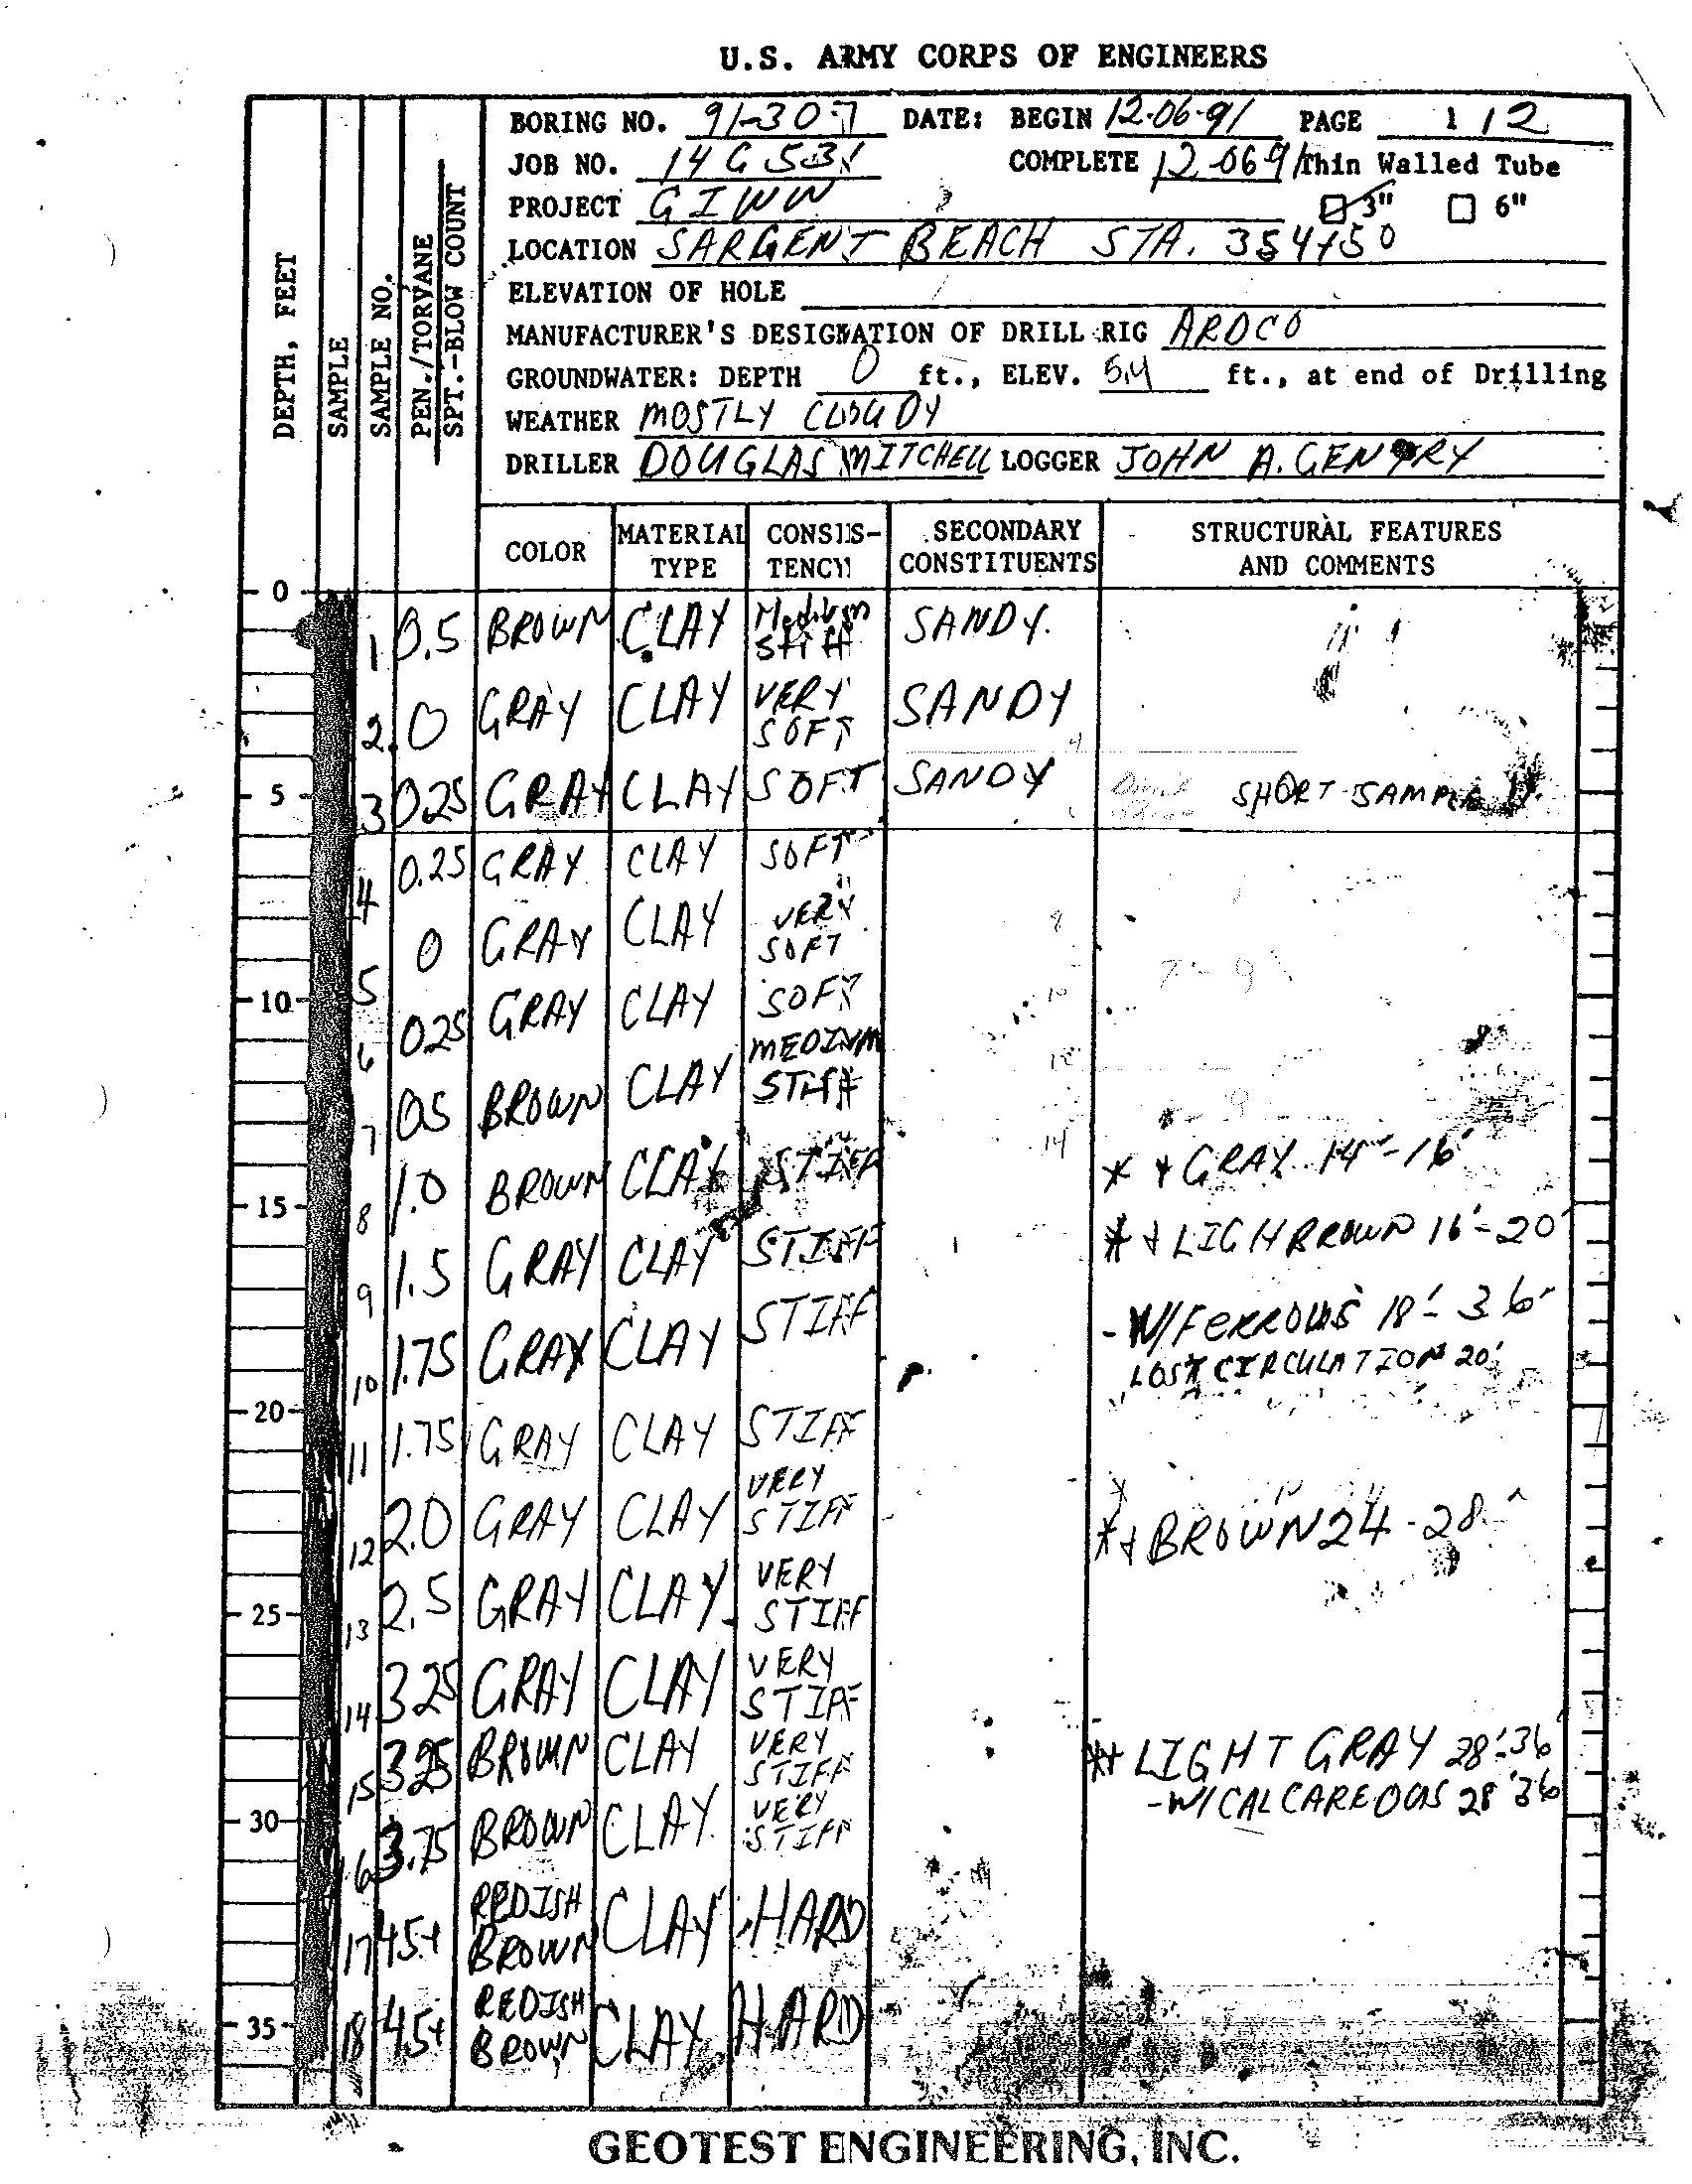 U.S. ARMY CORPS OF ENGINEERS
BORING NO. 91-307 DATE: BEGIN 12-06-91 PAGE 1 / 2
JOB NO. 14 G 531 COMPLETE 12-06 91 Thin Walled Tube
PROJECT GIWW 3" 6"
LOCATION SARGENT BEACH STA. 354+50
ELEVATION OF HOLE
MANUFACTURER'S DESIGNATION OF DRILL RIG ARDCO
GROUNDWATER: DEPTH 0 ft., ELEV. ft., at end of Drilling
WEATHER MOSTLY CLOUDY
DRILLER DOUGLAS MITCHELL LOGGER JOHN A. GENTRY
DEPTH, FEET
SAMPLE
SAMPLE NO.
PEN./TORVANE
SPT.-BLOW COUNT
COLOR MATERIAL TYPE CONSISTENCY SECONDARY CONSTITUENTS STRUCTURAL FEATURES AND COMMENTS
0
1 0.5 BROWN CLAY Medium Stiff SANDY.
2 0 GRAY CLAY VERY SOFT SANDY
5 3 0.25 GRAY CLAY SOFT SANDY SHORT SAMPLE
4 0.25 GRAY CLAY SOFT
5 0 GRAY CLAY VERY SOFT
10 6 025 GRAY CLAY SOFT
7 0.5 BROWN CLAY MEDIUM STIFF
15 8 1.0 BROWN CLAY STIFF * + GRAY 14'-16'
9 1.5 GRAY CLAY STIFF * + LIGH BROWN 16'-20'
10 1.75 GRAY CLAY STIFF - W/FERROUS 18'- 36'
LOST CIRCULATION 20'
20 11 1.75 GRAY CLAY STIFF
12 2.0 GRAY CLAY VERY STIFF * + BROWN 24 - 28'
25 13 2.5 GRAY CLAY VERY STIFF
14 3.25 GRAY CLAY VERY STIFF
15 3.25 BROWN CLAY VERY STIFF *+ LIGHT GRAY 28'-36'
30 16 3.75 BROWN CLAY VERY STIFF - W/CALCAREOUS 28'36
17 4.5+ REDISH BROWN CLAY HARD
35 18 4.5+ REDISH BROWN CLAY HARD
GEOTEST ENGINEERING, INC.